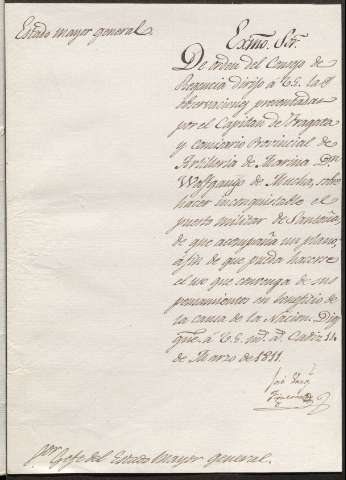 Estado mayor general.
Exmo. Sor.
De orden del Consejo de
Regencia dirijo á V.E. las o
bservaciones presentadas
por el Capitan de Fragata
y comisario Provincial de
Artilleria de Marina Dn.
Wolffango de Mucha, sobre
hacer inconquistable el
puerto militar de Santoña,
de que acompaña un plano,
afin de que pueda hacerse
el uso que convenga de sus
pensamientos en beneficio de
la causa de la Nacion. Dios
gue. á V.E. ms. as. Cadiz 11
de Marzo de 1811.
Gefe del Estado Mayor general.